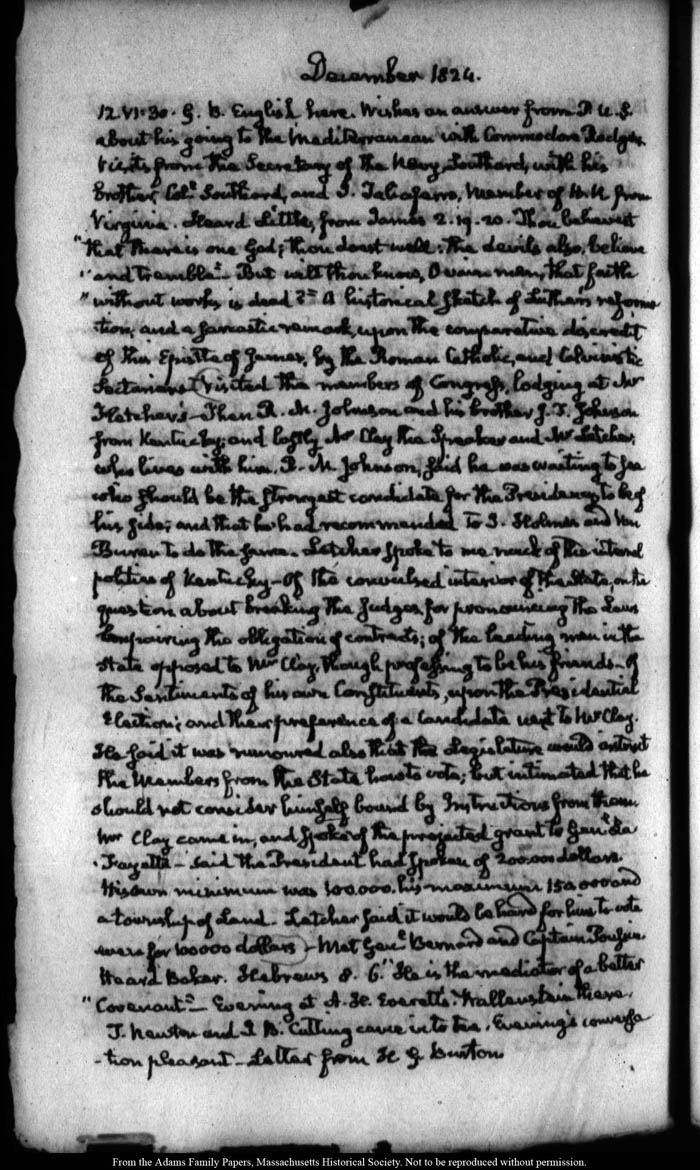 December 1824.
12. VI:30. G. B. English here. Wishes an answer from P. U.S.
about his going to the Mediterranean with Commodore Rodgers
Visits from the Secretary of the Navy, Southard, with his
brother, Coll. Southard, and J. Taliaferro, Member of H.R from
Virginia. Heard Little, from James 2. 19. 20. Thou believest
"that there is one God; thou doest well: the devils also, believe
"and tremble— But wilt thou know, O vain man, that faith
"without works is dead?" A historical sketch of Luther's reforma
tion, and a sarcastic remark, upon the comparative discredit
of this Epistle of James, by the Roman Catholic, and Calvinistic
Sectarians. Visited the members of Congress, lodging at Mr
Fletcher's— Then R. M. Johnson and his brother J. T. Johnson
from Kentucky; and lastly Mr Clay the Speaker and Mr Letcher,
who lives with him. R. M. Johnson, said he was waiting to see
who should be the strongest candidate for the Presidency to be of
his side; and that he had recommended to J. Holmes and Van
Buren to do the same. Letcher spoke to me much of the internal
politics of Kentucky— of the convulsed interior of the State, on the
question about breaking the Judges for pronouncing the Laws
impairing the obligation of contracts; of the leading men in the
State opposed to Mr Clay, though professing to be his friends— of
the Sentiments of his own Constituents, upon the Presidential
Election; and their preference of a Candidate next to Mr Clay.
He said it was rumoured also that the Legislature would instruct
the Members from the State how to vote; but intimated that he
should not consider himself bound by Instructions from them.
Mr Clay came in, and spoke of the projected grant to Genl. La
Fayette— said the President had spoken of 200.000 dollars.
His own minimum was 100.000. his maximum 150.000 and
a township of Land. Letcher said it would be hard for him to vote
even for 100000 dollars— Met Genl. Bernard and Captain Poussin
Heard Baker. Hebrews 8. 6. "He is the mediator of a better
"Covenant"— Evening at A. H. Everett's. Wallenstein there.
T. Newton and J. B. Cutting came in to tea. Evening's conversa
-tion pleasant— Letter from H G Burton
From the Adams Family Papers, Massachusetts Historical Society. Not to be reproduced without permission.